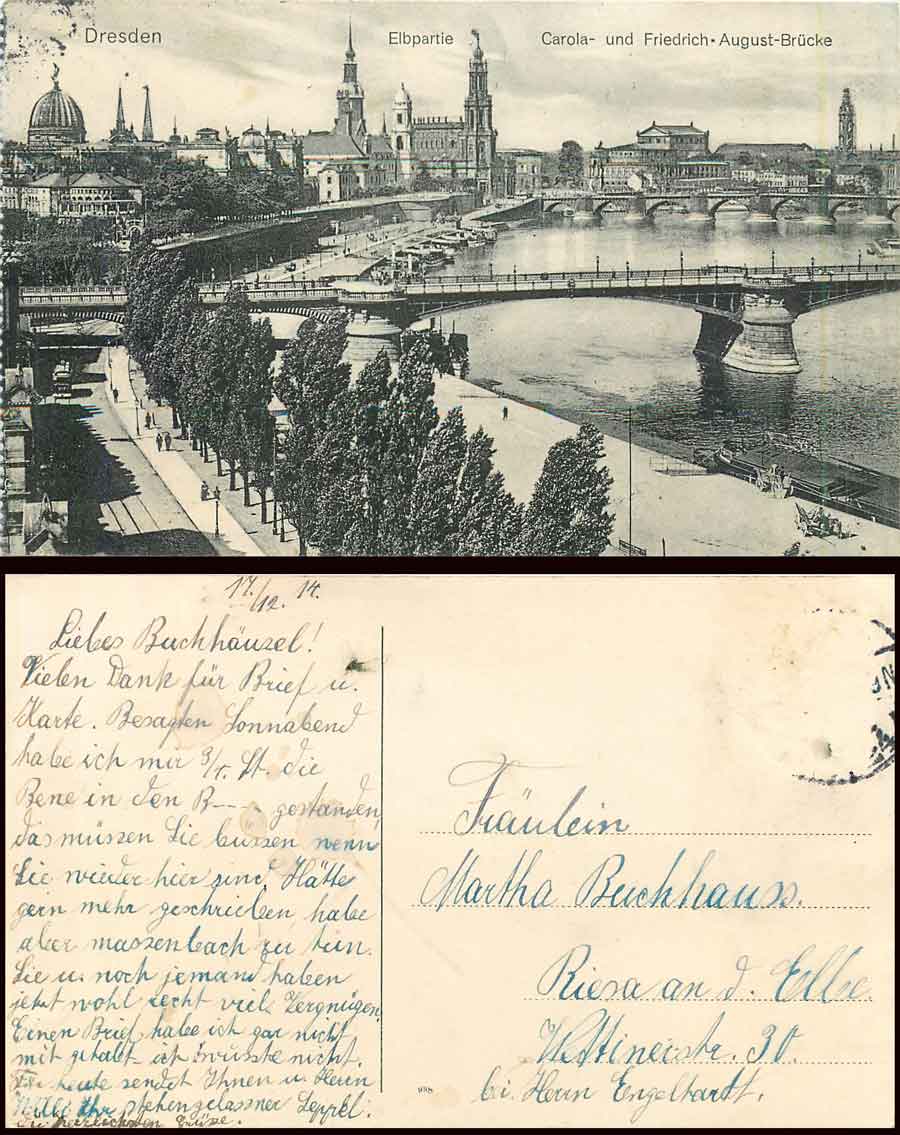 Dresden
Elbpartie
Carola- und Friedrich-August-Brücke
17./12. 14.
Liebes Buchhäusel!
Vielen Dank für Brief u.
Karte. Besagten Sonnabend
habe ich mir 3/4 St. die
Bene in den B--- gestanden,
das müssen Sie büssen wenn
Sie wieder hier sind. Hätte
gern mehr geschrieben, habe
aber massenbach zu tun.
Sie u. noch jemand haben
jetzt wohl recht viel Vergnügen.
Einen Brief habe ich gar nicht
mit gehabt ich wusste nicht.
Für heute sendet Ihnen u. Herrn
Ihr stehengelassner Seppel.
die herzlichsten Grüsse.
998
Fräulein
Martha Buchhauss.
Riesa an d. Elbe
Wettinerstr. 30.
bei Herrn Engelhardt.